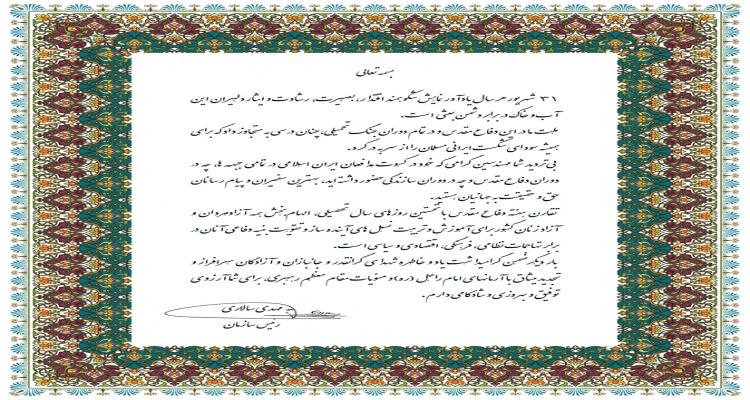 بسمه تعالی
۳۱ شهریور هر سال یادآور نمایش شکوهمند اقتدار، بصیرت، رشادت و ایثار دلیران این
آب و خاک در برابر دشمن بعثی است.
ملت ما در این دفاع مقدس و در تمام دوران جنگ تحمیلی، چنان درسی به متجاوز داد که برای
همیشه سودای شکست ایرانی مسلمان را از سر به در کرد.
بی تردید شما مهندسین گرامی که خود در کسوت مدافعان ایران اسلامی در تمامی جبهه ها، چه در
دوران دفاع مقدس و چه در دوران سازندگی حضور داشته اید، بهترین سفیران و پیام رسانان
حق و حقیقت به جهانیان هستید.
تقارن هفته دفاع مقدس با نخستین روزهای سال تحصیلی، الهام بخش همه آزادمردان و
آزاد زنان کشور برای آموزش و تربیت نسل های آینده ساز و تقویت بنیه دفاعی آنان در
برابر تهاجمات نظامی، فرهنگی، اقتصادی و سیاسی است.
بار دیگر ضمن گرامیداشت یاد و خاطره شهدای گرانقدر و جانبازان و آزادگان سرافراز و
تجدید میثاق با آرمانهای امام راحل (ره) و منویات مقام معظم رهبری، برای شما آرزوی
توفیق و بهروزی و شادکامی دارم.
مهدی سالاری
رئیس سازمان